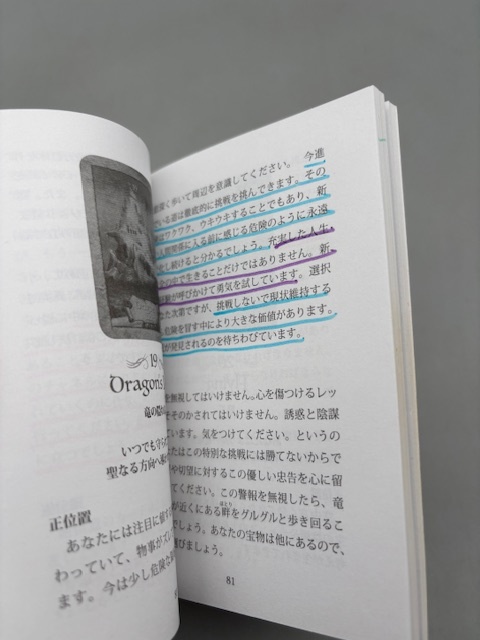 19
Dragons
いつでも
聖なる方向へ
正位置
あなたには注目に
わっていて、物事が
ます。今は少し危険な
歩いて周辺を意識してください。 今進
いる道は徹底的に挑戦を挑んできます。その
はワクワク、ウキウキすることでもあり、新
人間関係に入る前に感じる危険のように永遠
し続けると分かるでしょう。充実した人生、
の中で生きることだけではありません。新
が呼びかけて勇気を試しています。選択
次第ですが、挑戦しないで現状維持する
危険を冒す中により大きな価値があります。
が発見されるのを待ちわびています。
を無視してはいけません。心を傷つけるレッ
そそのかされてはいけません。誘惑と陰謀
ています。気をつけてください。というの
たはこの特別な挑戦には勝てないからで
や切望に対するこの優しい忠告を心に留
てください。この警報を無視したら、竜
が近くにある畔をグルグルと歩き回るこ
でしょう。あなたの宝物は他にあるので、
びましょう。
81